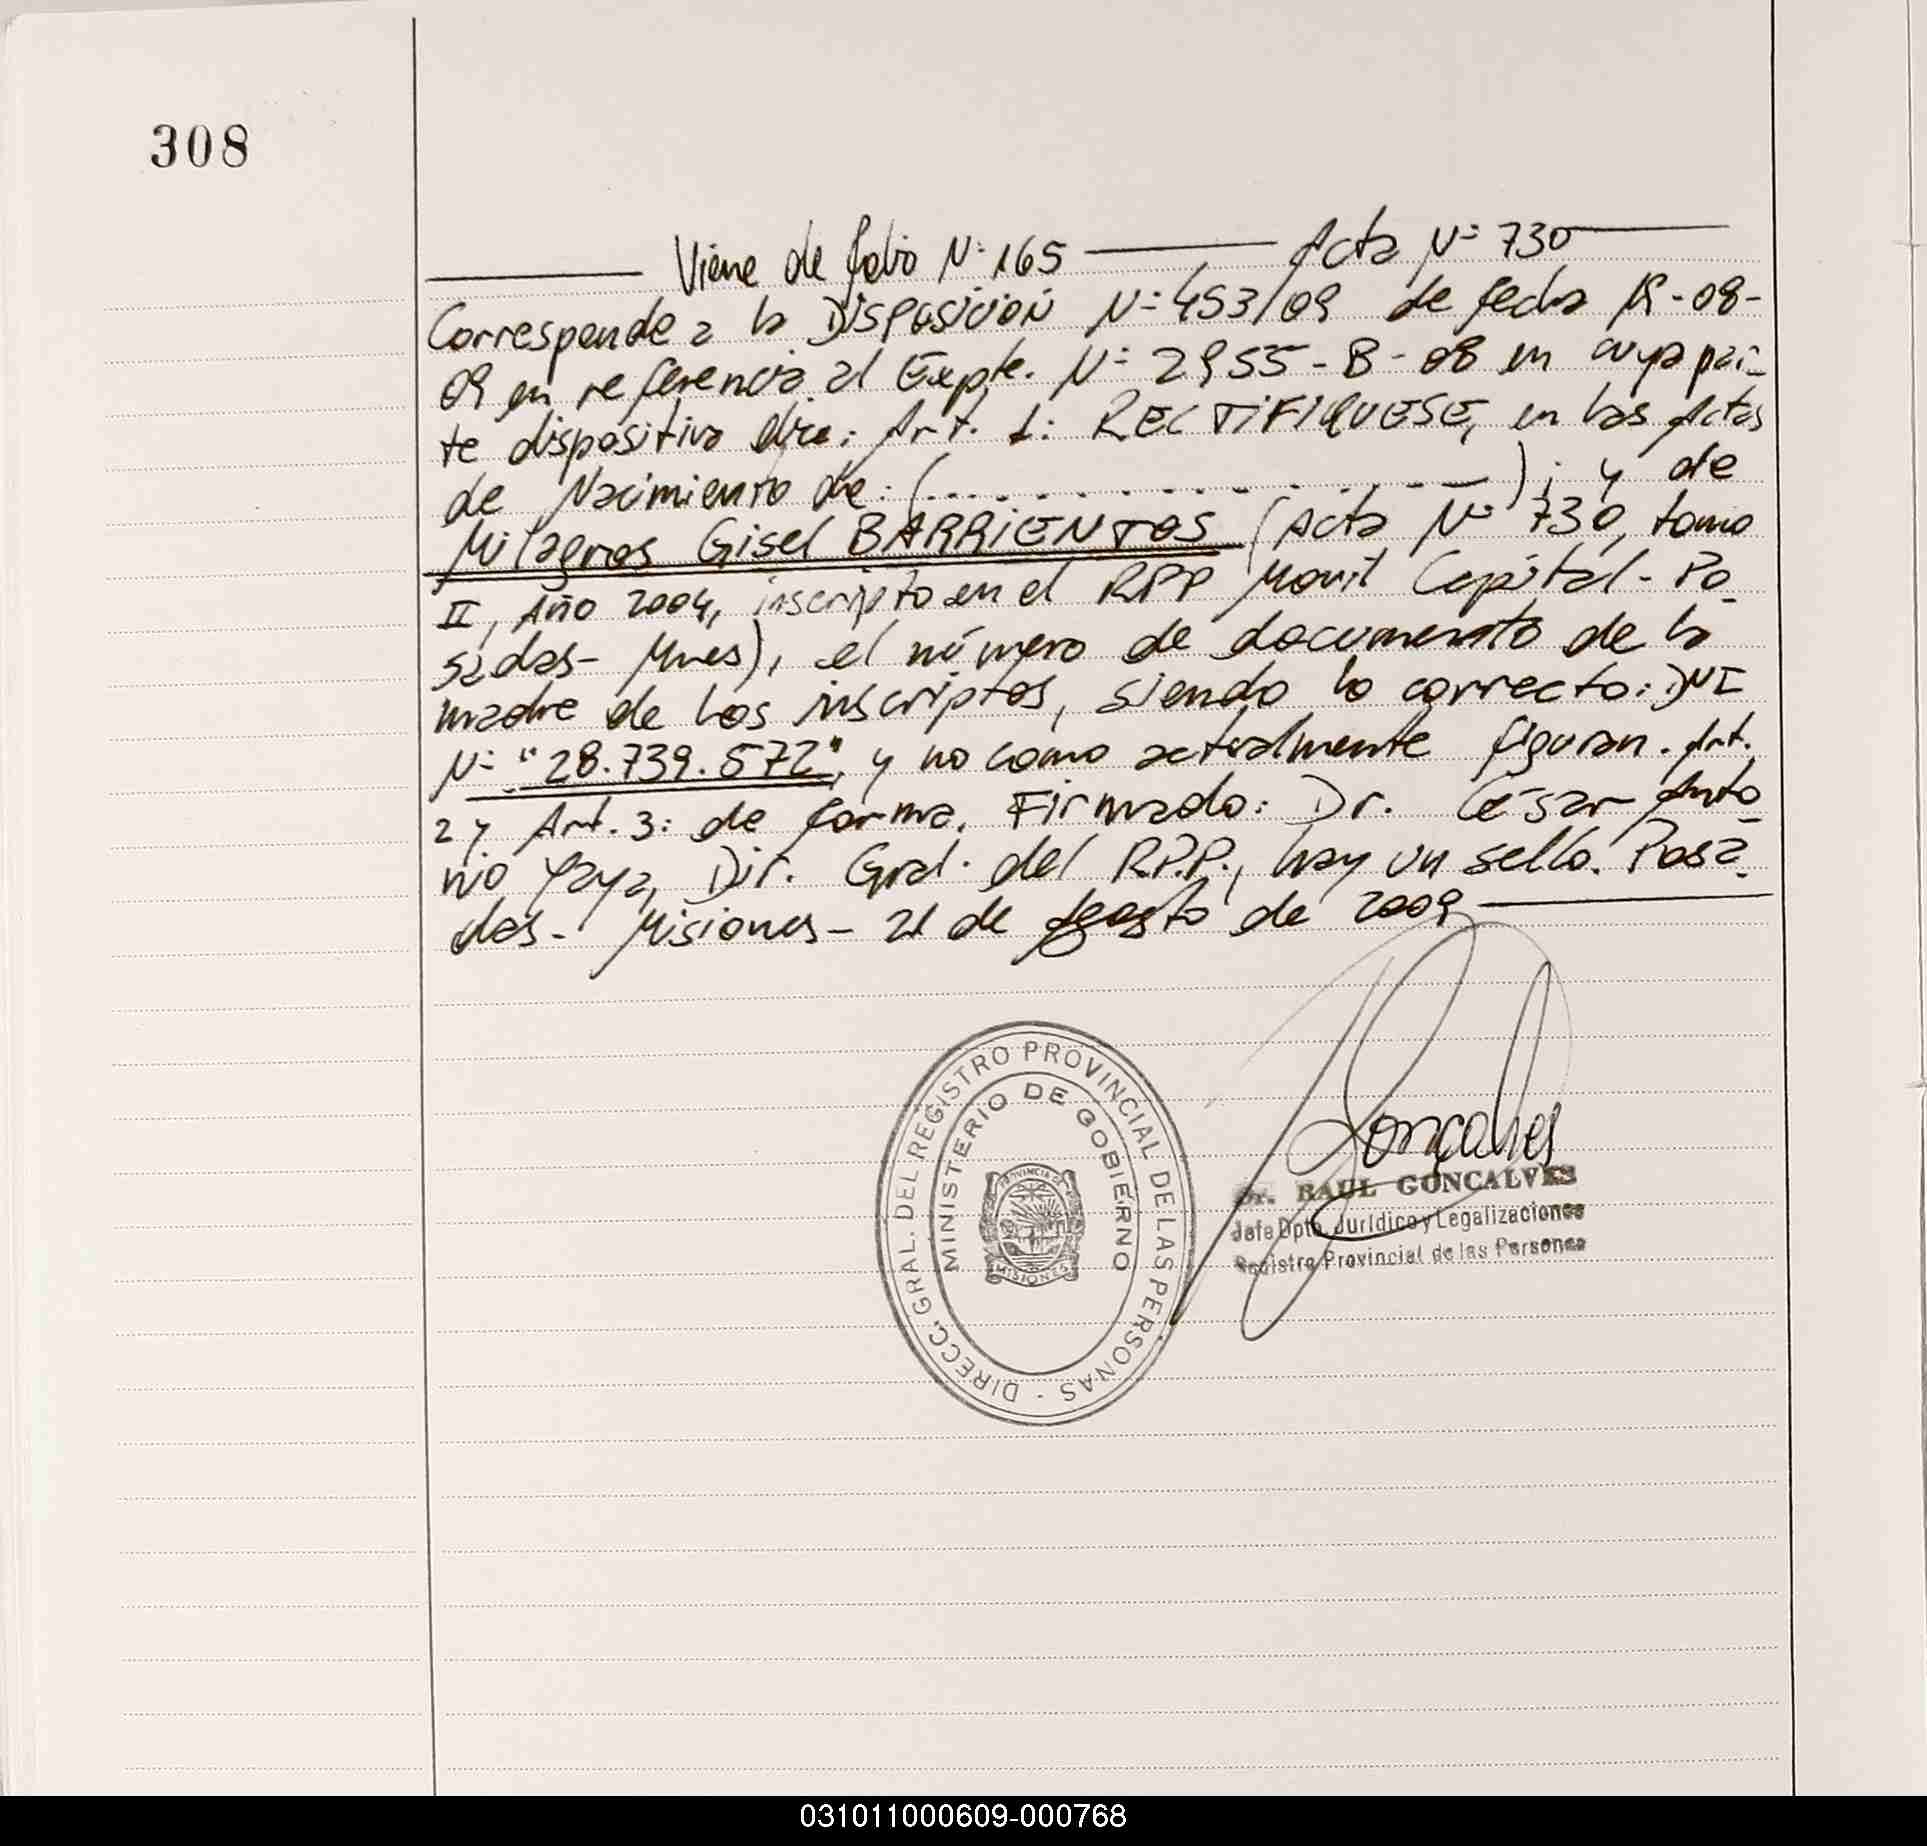 308
Viene de folio N: 165 Acta N= 730
Corresponde a la DISPOSICION N= 453/09 de fecha 19-08-
09 en referencia al Expte. N= 2955-B-08 en cuya par-
te dispositiva dice: Art. 1: RECTIFIQUESE, en las Actas
de Nacimiento de: (....................); y de
Milagros Gisel BARRIENTOS (Acta N= 730, tomo
II, Año 2004, inscripto en el RPP Movil Capital- Po-
sadas- Mnes), el número de documento de la
madre de los inscriptos, siendo lo correcto: DNI
N= "28.739.572", y no como actualmente figuran. Art.
2 y Art. 3: de forma. Firmado: Dr. César Anto-
nio Yaya, Dir. Gral. del R.P.P., hay un sello. Posa-
das- Misiones- 21 de Agosto de 2009
DIRECC. GRAL. DEL REGISTRO PROVINCIAL DE LAS PERSONAS -
MINISTERIO DE GOBIERNO
PROVINCIA D
MISIONES
Gonçalves
Dr. RAUL GONCALVES
Jefe Dpto. Jurídico y Legalizaciones
Registro Provincial de las Personas
031011000609-000768